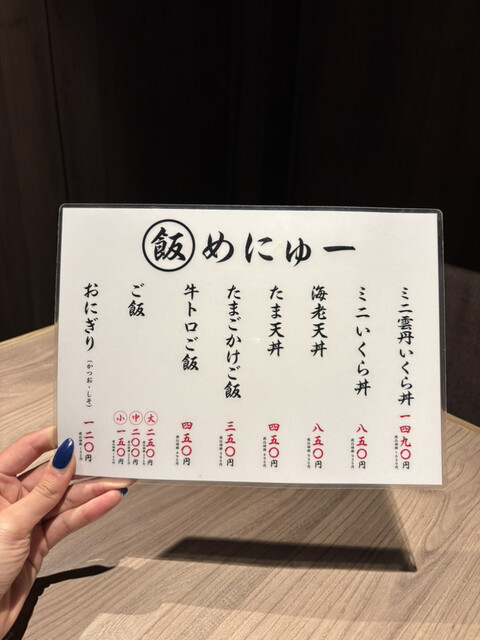 飯 めにゅー
ミニ雲丹いくら丼 一四九〇円
ミニいくら丼 八五〇円
海老天丼 八五〇円
たま天丼 四五〇円
たまごかけご飯 三五〇円
牛トロご飯 四五〇円
ご飯
大 二五〇円
中 二〇〇円
小 一五〇円
おにぎり（かつお・しそ） 一二〇円